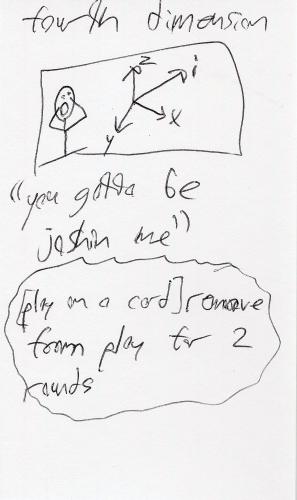 fourth dimension
z
i
x
y
"you gotta be
joshin me"
[play on a card] remove
from play for 2
rounds